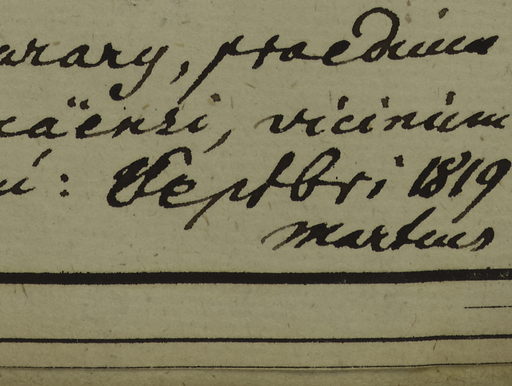 urary, praedium
caënsi, vicinum
ú: Septbri 1819
Martius